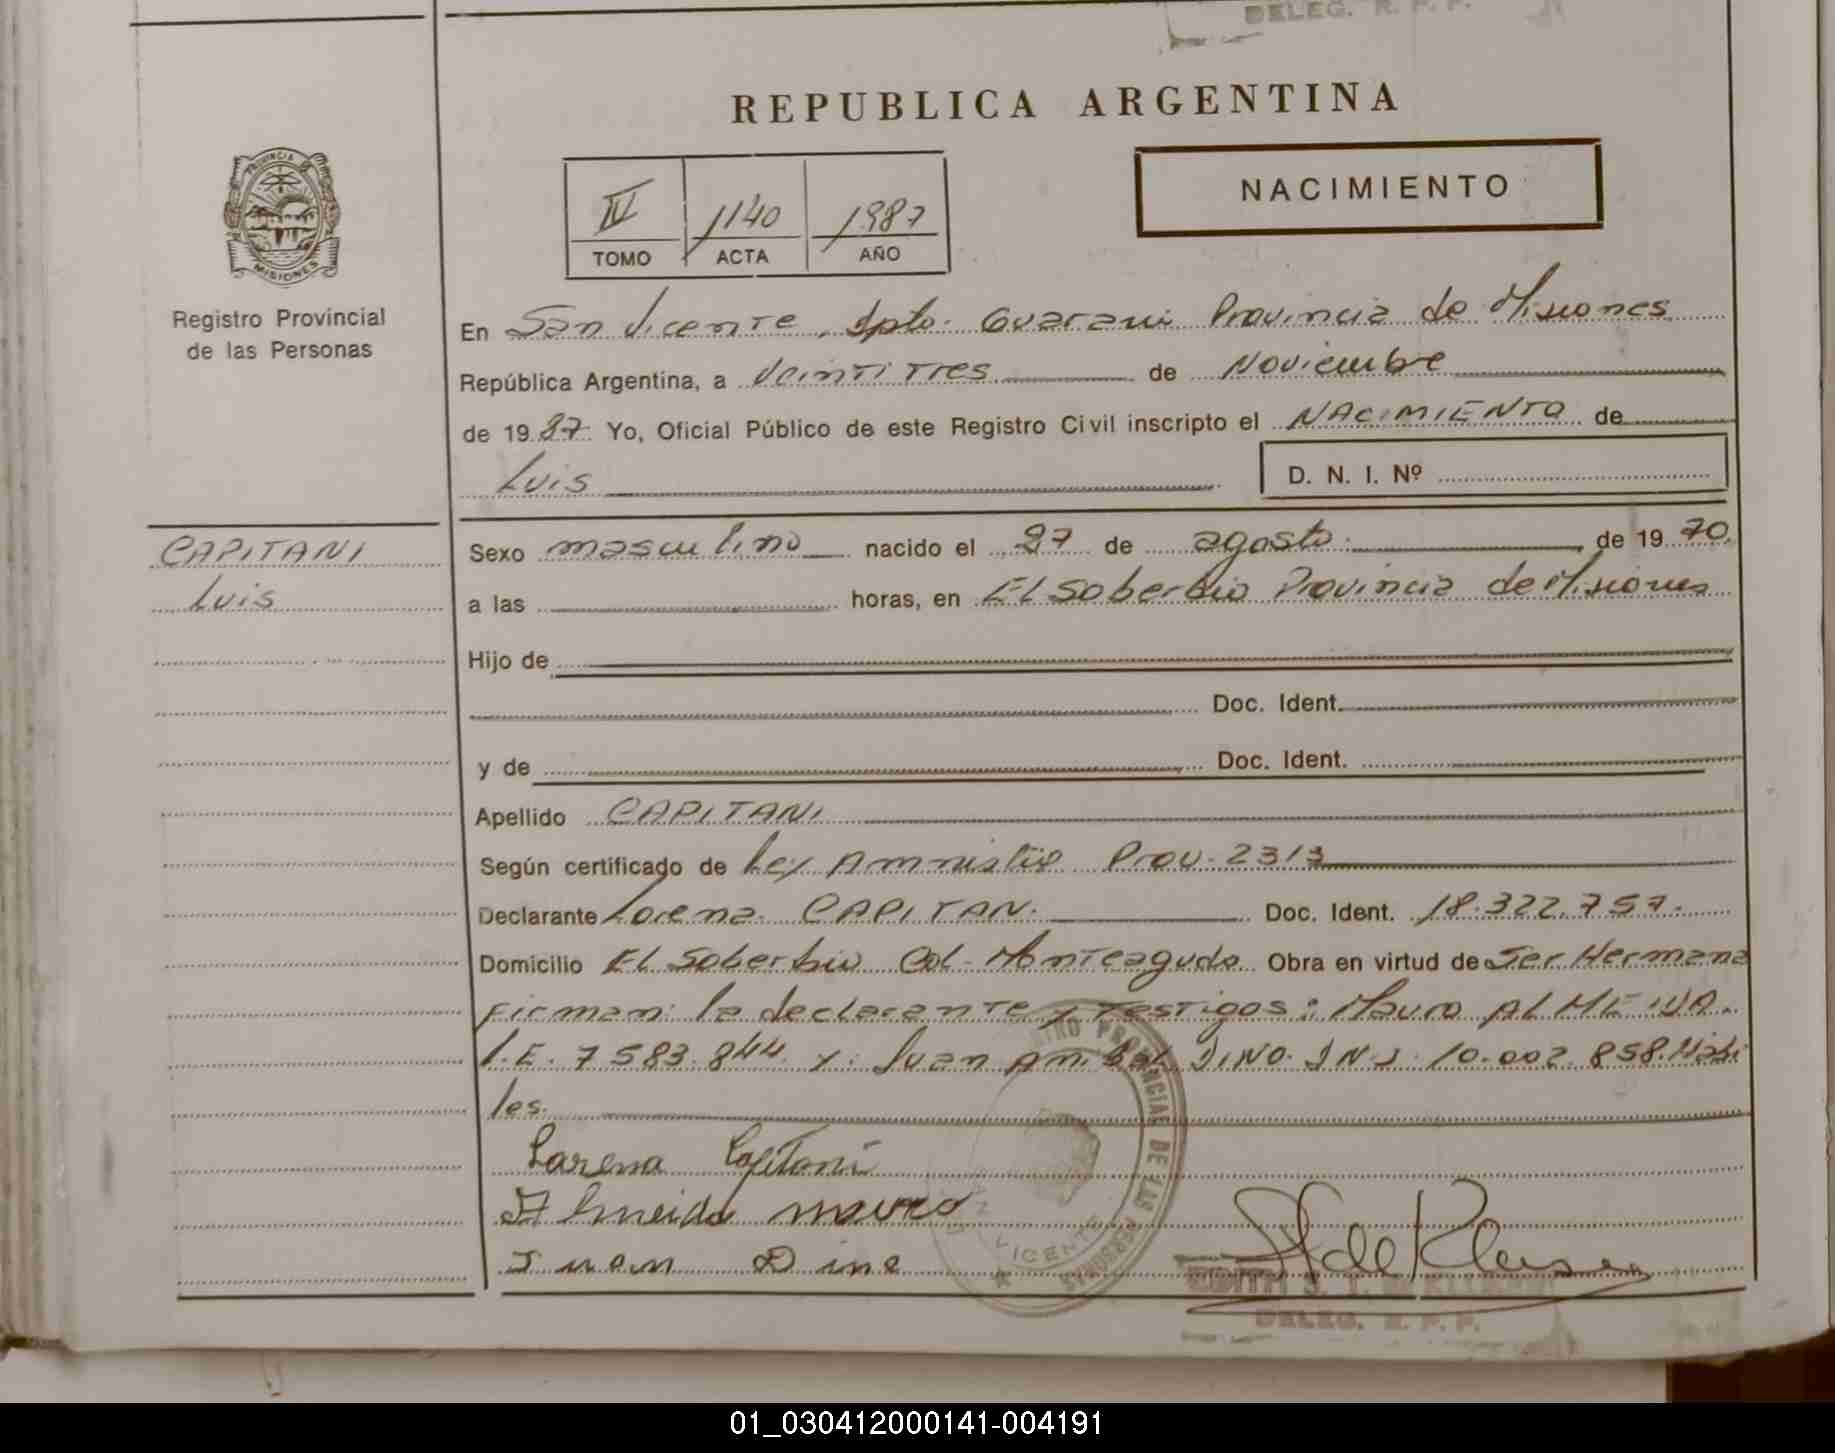 DELEG. R. P. P.
REPUBLICA ARGENTINA
PROVINCIA DE
MISIONES
Registro Provincial
de las Personas
IV 1140 1987
TOMO ACTA AÑO
NACIMIENTO
En San Vicente, Dpto. Guarani Provincia de Misiones
República Argentina, a veintitres de Noviembre
de 19 87. Yo, Oficial Público de este Registro Civil inscripto el NACIMIENTO de
Luis D. N. I. Nº
CAPITANI
Luis
Sexo masculino nacido el 27 de agosto. de 19 70.
a las horas, en El Soberbio Provincia de Misiones
Hijo de
Doc. Ident.
y de Doc. Ident.
Apellido CAPITANI
Según certificado de Ley Amnistia Prov. 2313
Declarante Lorena CAPITANI. Doc. Ident. 18.322.757.
Domicilio El Soberbio Col. Monteagudo Obra en virtud de Ser Hermana
firman: la declarante y testigos: Mauro ALMEIDA.
L.E. 7583.844 y: Juan Anibal DINO. DNI. 10.002.858. Hábi
les.
Lorena Capitani
Almeida mauro
Juan Dino
REGISTRO PROVINCIAL DE LAS PERSONAS
SAN VICENTE
EDITH S. J.
DELEG. R. P. P.
01_030412000141-004191